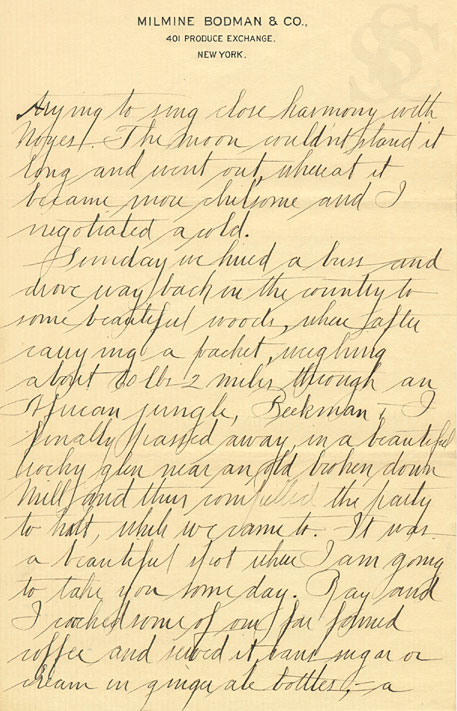 MILMINE BODMAN & CO.,
401 PRODUCE EXCHANGE.
NEW YORK.
trying to sing close harmony with
Noyes. The moon couldn't stand it
long and went out, whereat it
became more chilsome and I
negotiated a cold.
Sunday we hired a buss and
drove way back in the country to
some beautiful woods, where after
carrying a packet, weighing
about 60 lbs 2 miles through an
African jungle, Beekman & I
finally passed away, in a beautiful
rocky glen near an old broken down
mill and thus compelled the party
to halt, which we came to. It was
a beautiful spot where I am going
to take you some day. Ray and
I cooked some of our far famed
coffee and served it, sans sugar or
cream in ginger ale bottles, - a